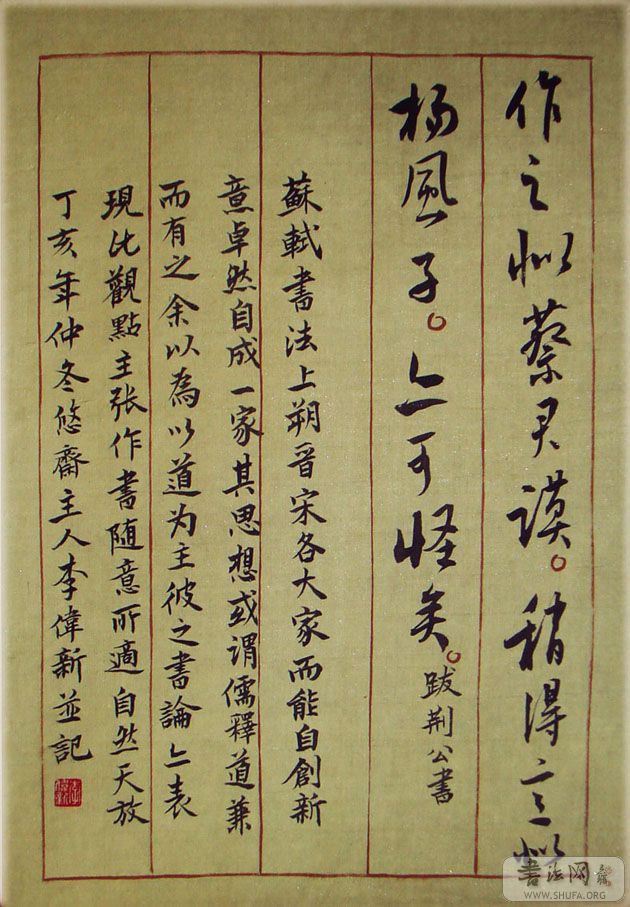 作之似蔡君谟。稍得意似
杨風子。亦可怪矣。跋荆公書
蘇軾書法上朔晋宋各大家而能自創新
意卓然自成一家其思想或谓儒釋道兼
而有之余以為以道为主彼之書論亦表
現此觀點主张作書随意所適自然天放
丁亥年仲冬悠齋主人李偉新並記
書法网
WWW.SHUFA.ORG